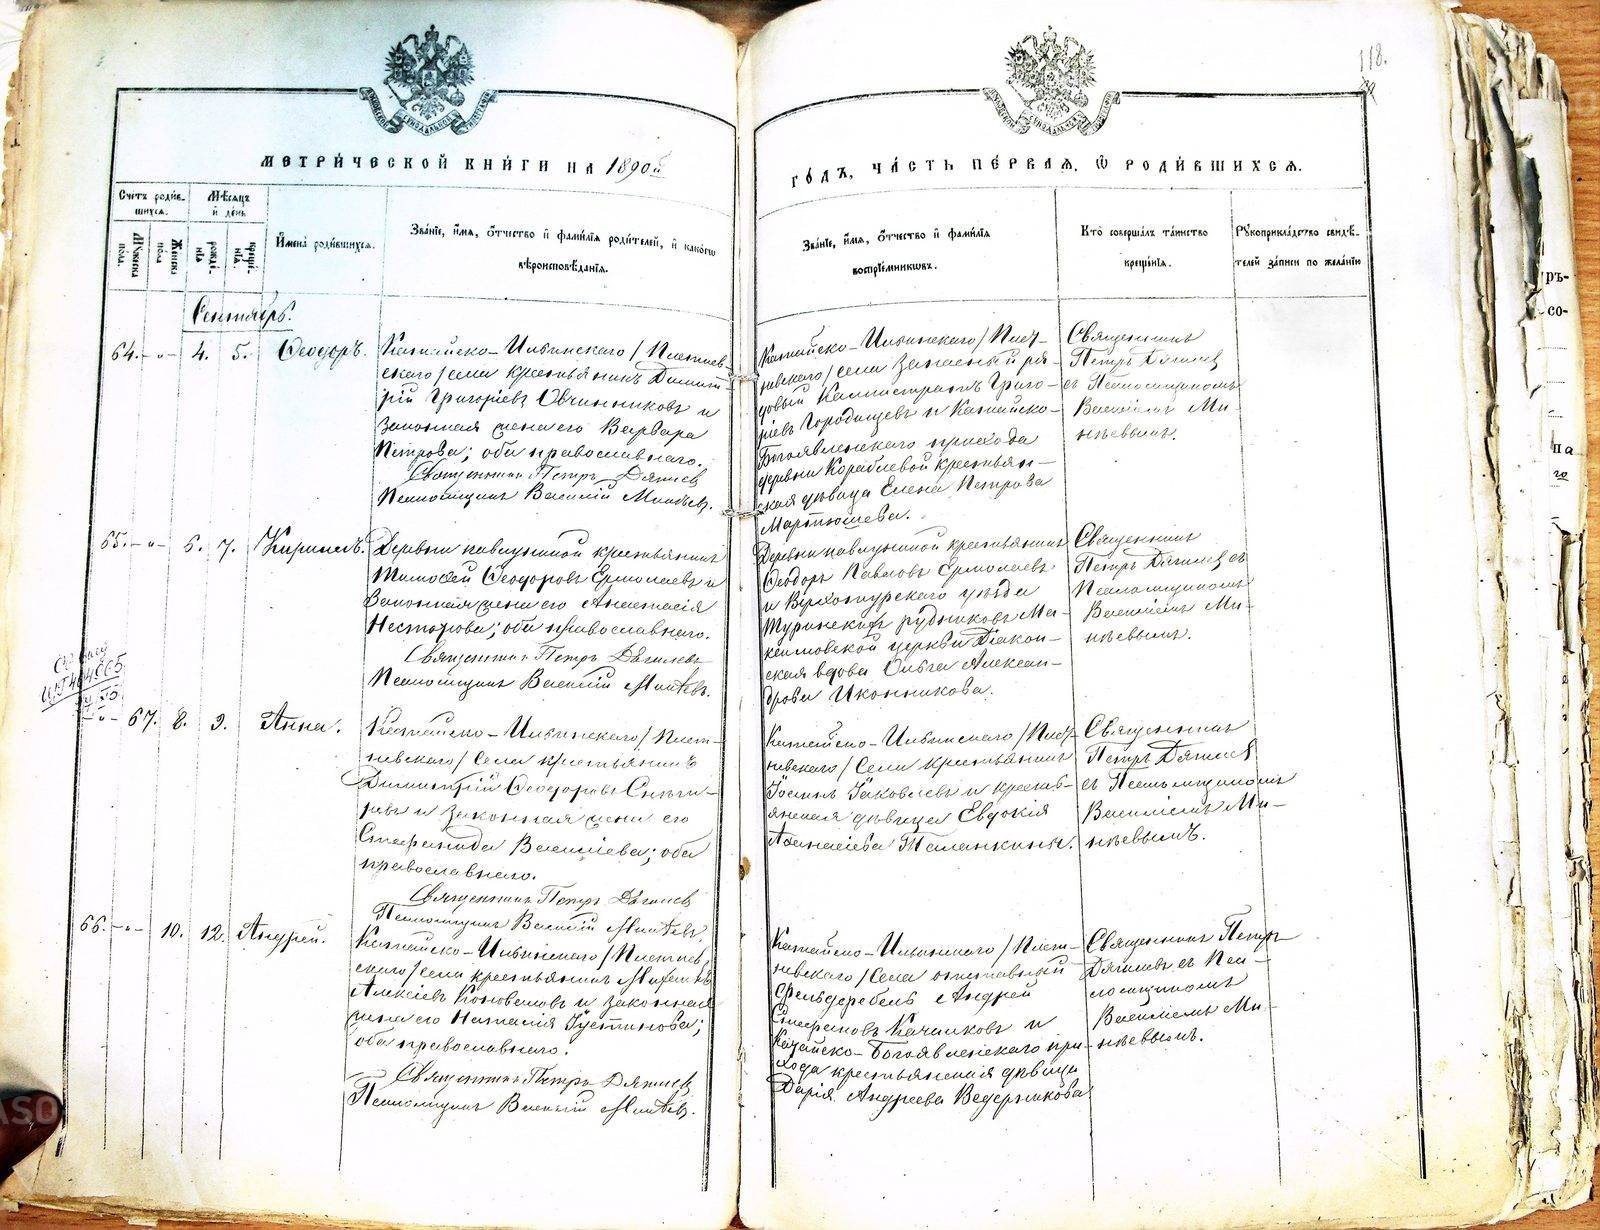 118.
МОСКОВСКОЙ СѴНОДАЛЬНОЙ ТИПОГРАФІИ
МОСКОВСКОЙ СѴНОДАЛЬНОЙ ТИПОГРАФІИ
МЕТРИ́ЧЕСКОЙ КНИ́ГИ НА 1890й
ГО́ДЪ, ЧА́СТЬ ПЕ́РВАЯ, Ѽ РОДИ́ВШИХСЯ.
Сче́тъ роди́в-
шихся.
Мѣ́сяцъ
и҆ де́нь
Мꙋжеска
пола.
Женска
пола
рожде́-
нїѧ
креще́-
нїѧ.
И҆мена̀ роди́вшихся.
Зва́нїе, и҆́мя, ѻ҆́тчество и҆ фами́лїя роди́телей, и҆ како́гѡ
вѣроисповѣ́данїя.
Зва́нїе, и҆́мя, ѻ҆́тчество и҆ фами́лїя
воспрїе́мникѡвъ.
Кто̀ соверша́лъ та́инство
креще́нїя.
Рꙋкоприкла́дство свидѣ́-
телей за́писи по жела́нїю
Сентябрь.
64. - „ - 4. 5. Ѳеодоръ.
Катайско-Ильинскаго /Плотнев-
скаго/ села крестьянинъ Димит-
рій Григоріевъ Овчинниковъ и
законная жена его Варвара
Петрова; оба православнаго.
Священникъ Петръ Дягилев
Псаломщикъ Василій Минѣевъ.
Катайско-Ильинскаго /Плот-
невскаго/ села запасный ря-
довый Каллистратъ Григо-
ріевъ Городищевъ и Катайско-
Богоявленскаго прихода
деревни Кораблевой крестьян-
ская дѣвица Елена Петрова
Мартюшева.
Священникъ
Петръ Дягилев
съ Псаломщикомъ
Василіемъ Ми-
нѣевымъ.
65. - „ - 6. 7. Кириллъ.
Деревни крестьянинъ
Тимоѳей Ѳеодоровъ Ермолаевъ и
законная жена его Анастасія
Несторова; оба православнаго.
Священникъ Петръ Дягилевъ
Псаломщикъ Василій Минѣевъ.
Деревни крестьянинъ
Ѳеодоръ Павловъ Ермолаевъ
и Верхотурскаго уѣзда
Туринскихъ рудниковъ Ма-
ксимовской церкви Діакон-
ская вдова Ольга Алексан-
дрова Иконникова.
Священникъ
Петръ Дягилев съ
Псаломщикомъ
Василіемъ Ми-
нѣевымъ.
- „ - 67. 8. 9. Анна.
Катайско-Ильинскаго /Плот-
невскаго/ села крестьянинъ
Димитрій Ѳеодоровъ Снѣги-
ревъ и законная жена его
Стефанида Василіева; оба
православнаго.
Священникъ Петръ Дягилев
Псаломщикъ Василій Минѣевъ.
Катайско-Ильинскаго /Плот-
невскаго/ села крестьянинъ
Іосифъ Іаковлевъ и кресть-
янская дѣвица Евдокія
Аѳанасіева Таланкины.
Священникъ
Петръ Дягилев
съ Псаломщикомъ
Василіемъ Ми-
нѣевымъ.
66. - „ - 10. 12. Андрей.
Катайско-Ильинскаго /Плотнев-
скаго/ села крестьянинъ
Алексіевъ Коноваловъ и законная
жена его Наталія Іустинова;
оба православнаго.
Священникъ Петръ Дягилев
Псаломщикъ Василій Минѣевъ.
Катайско-Ильинскаго /Плот-
невскаго/ села отставный
Фельдфебель Андрей
Стефановъ Качалковъ и
Катайско-Богоявленскаго при-
хода крестьянская дѣвица
Дарія Андреева Ведерникова
Священникъ Петръ
Дягилевъ съ Пса-
ломщикомъ
Василіемъ Ми-
нѣевымъ.
ръ-
со-
на
го